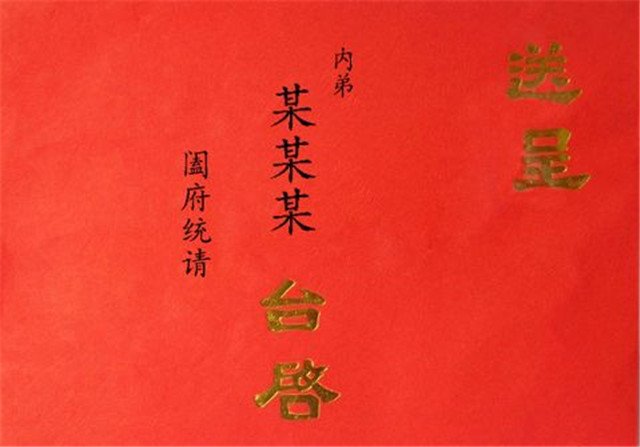 送呈
内弟
某某某
台啓
阖府统请